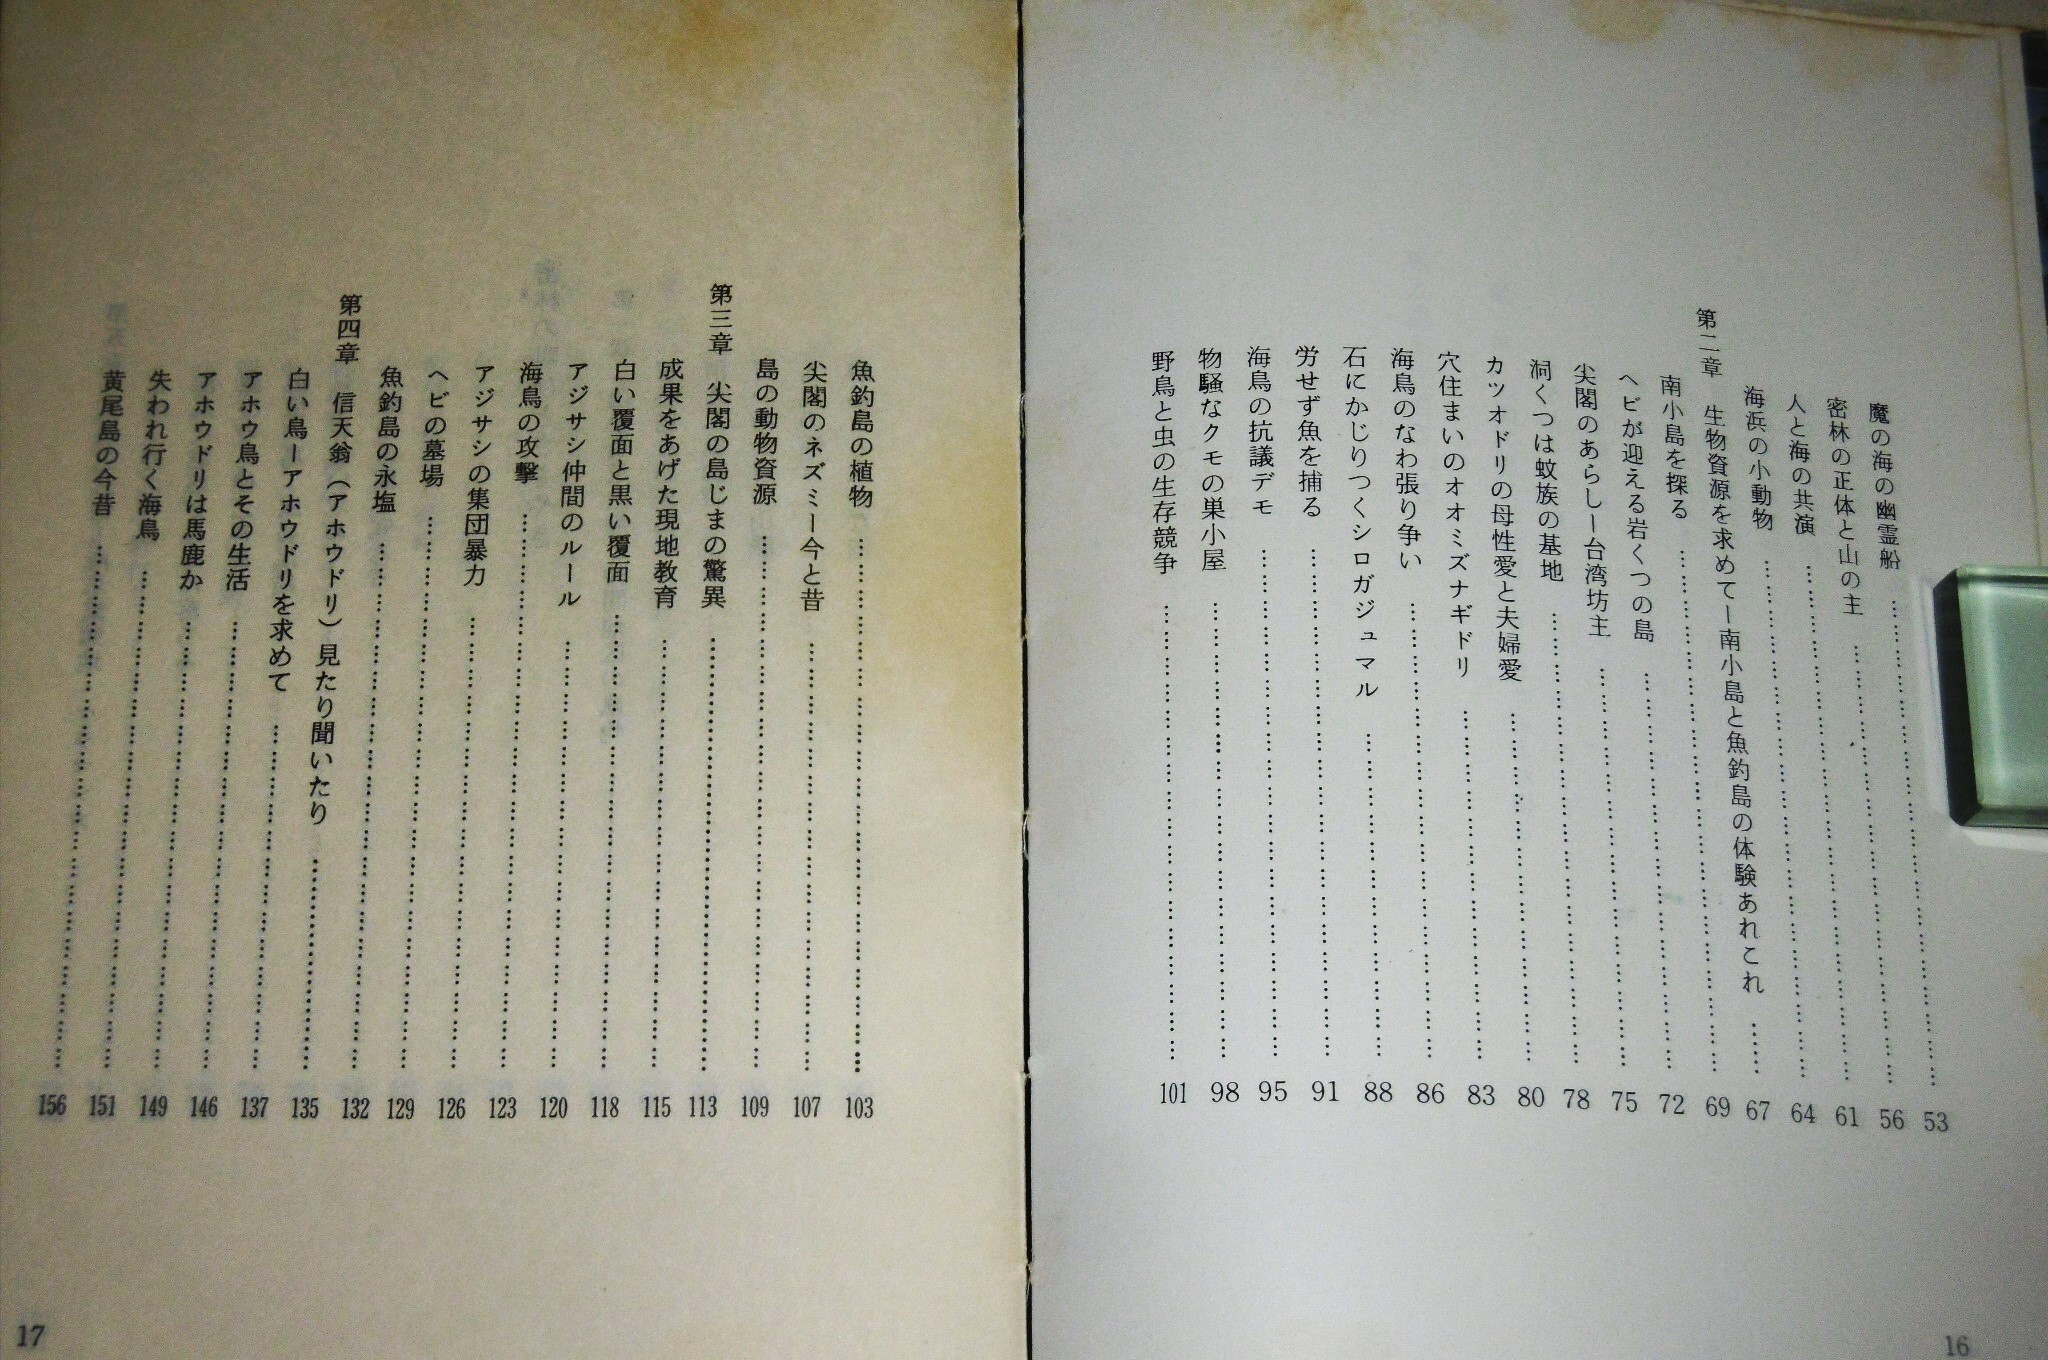 魔の海の幽霊船 …… 53
密林の正体と山の主 …… 56
人と海の共演 …… 61
海浜の小動物 …… 64
第二章 生物資源を求めてー南小島と魚釣島の体験あれこれ …… 67
南小島を探る …… 69
ヘビが迎える岩くつの島 …… 72
尖閣のあらしー台湾坊主 …… 75
洞くつは蚊族の基地 …… 78
カツオドリの母性愛と夫婦愛 …… 80
穴住まいのオオミズナギドリ …… 83
海鳥のなわ張り争い …… 86
石にかじりつくシロガジュマル …… 88
労せず魚を捕る …… 91
海鳥の抗議デモ …… 95
物騒なクモの巣小屋 …… 98
野鳥と虫の生存競争 …… 101
16
魚釣島の植物 …… 103
尖閣のネズミー今と昔 …… 107
島の動物資源 …… 109
第三章 尖閣の島じまの驚異 …… 113
成果をあげた現地教育 …… 115
白い覆面と黒い覆面 …… 118
アジサシ仲間のルール …… 120
海鳥の攻撃 …… 123
アジサシの集団暴力 …… 126
ヘビの墓場 …… 129
魚釣島の永塩 …… 132
第四章 信天翁（アホウドリ）見たり聞いたり …… 135
白い鳥ーアホウドリを求めて …… 137
アホウ鳥とその生活 …… 146
アホウドリは馬鹿か …… 149
失われ行く海鳥 …… 151
黄尾島の今昔 …… 156
17